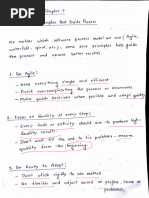 Chapter 4
Principles that Guide Process
No matter which software process model we use (Agile,
waterfall, spiral, etc.), some core principles help guide
the process and ensure better results
1. Be Agile:
- keep everything simple and efficient
- Avoid over complicating the process or documents
- Make quick decisions when possible and adapt quickly
2. Focus on Quality at every step:
- Every task or activity should aim to produce high-
quality results.
- Don't wait till the end to fix problems - ensure
quality from the beginning.
3. Be Ready to Adapt:
- Don't stick rigidly to one method.
- Be flexible and adjust based on project, team or
problems.